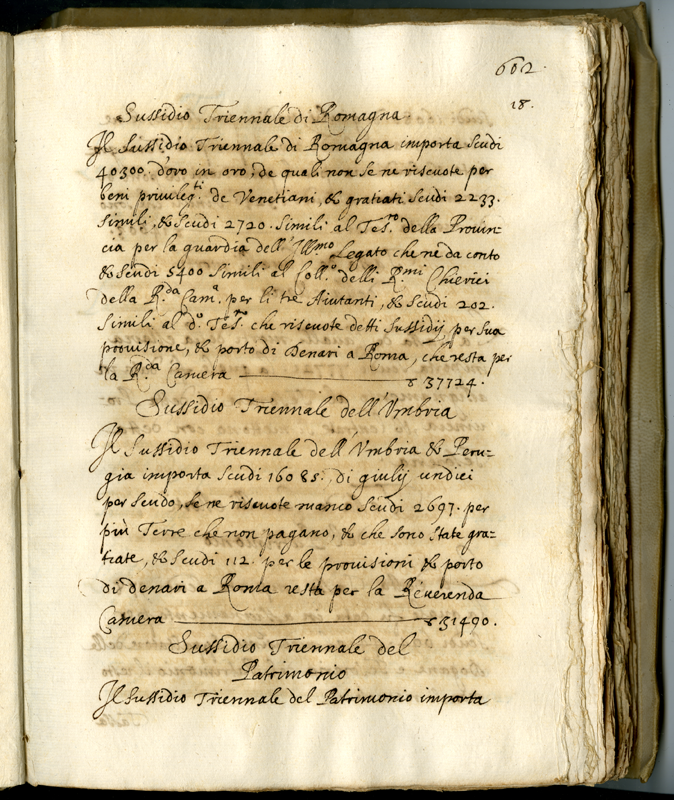 602.
18.
Sussidio Triennale di Romagna
Il Sussidio Triennale di Romagna importa Scudi
40300. d'oro in oro, de quali non se ne riscuote per
beni privileg.ti de Venetiani, & gratiati Scudi 2233.
simili, & Scudi 2720. simili al Tes.ro della Provin=
cia per la guardia dell'Ill.mo Legato che ne da conto
& Scudi 5400 simili al Coll.o delli R.mi Chierici
della R.da Cam.a per li tre Aiutanti, & Scudi 202.
simili al d.o Tes.ro che riscuote detti Sussidij per sua
provisione, & porto di Denari a Roma, che resta per
la R.da Camera ——— 37724.
Sussidio Triennale dell'Vmbria
Il Sussidio Triennale dell'Vmbria & Peru=
gia importa Scudi 16085. di giulij undici
per Scudo, se ne riscuote manco Scudi 2697. per
più Terre che non pagano, & che sono state gra=
tiate, & Scudi 112. per le provisioni & porto
di denari a Roma resta per la Reverenda
Camera ——— 31490.
Sussidio Triennale del
Patrimonio
Il Sussidio Triennale del Patrimonio importa